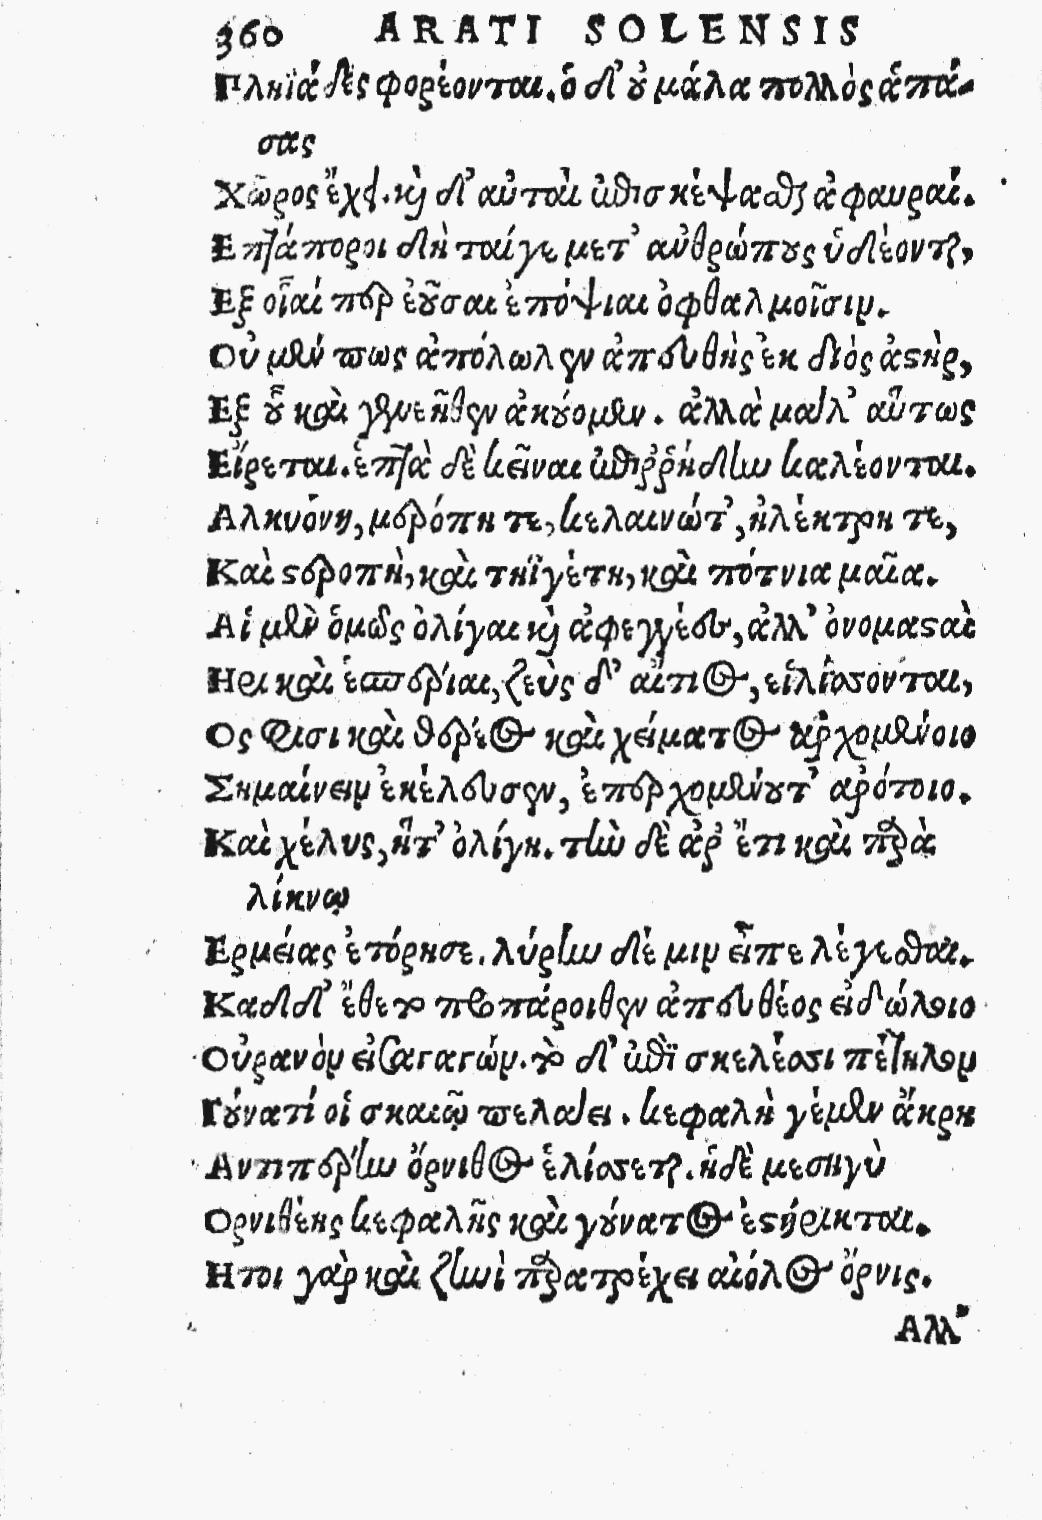 360 ARATI SOLENSIS
Πληϊάδες φορέονται. ὁ δ' οὐ μάλα πολλὸς ἁπά-
σας
Χῶρος ἔχει. καὶ δ' αὐταὶ ἐπισκέψασθαι ἀφαυραί.
Επτάποροι δὴ ταίγε μετ' ἀνθρώπους ὑδέονται,
Εξ οἶαί περ ἐοῦσαι ἐπόψιαι ὀφθαλμοῖσιν.
Οὐ μέν πως ἀπόλωλεν ἀπευθὴς ἐκ διὸς ἀστὴρ,
Εξ οὗ καὶ γενεῆθεν ἀκούομεν. ἀλλὰ μάλ' αὔτως
Εἴρεται. ἑπτὰ δὲ κεῖναι ἐπιῤῥήδην καλέονται.
Αλκυόνη, μερόπη τε, κελαινώτ', ἠλέκτρη τε,
Καὶ στεροπὴ, καὶ τηϊγέτη, καὶ πότνια μαῖα.
Αἱ μὲν ὁμῶς ὀλίγαι καὶ ἀφεγγέες, ἀλλ' ὀνομασταὶ
Ηρι καὶ ἑσπερίαι, ζεὺς δ' αἴτιος, εἱλίσσονται,
Ος σφισι καὶ θέρεος καὶ χείματος ἀρχομένοιο
Σημαίνειν ἐκέλευσεν, ἐπερχομένουτ' ἀρότοιο.
Καὶ χέλυς, ἥτ' ὀλίγη. τὴν δὲ ἀρ' ἔτι καὶ παρὰ
λίκνῳ
Ερμείας ἐτόρησε. λύρην δέ μιν εἶπε λέγεσθαι.
Καδδ' ἔθετο προπάροιθεν ἀπευθέος εἰδώλοιο
Οὐρανὸν εἰσαγαγών. τὸ δ' ἐπὶ σκελέεσσι πέτηλον
Γούνατί οἱ σκαιῷ πελάει. κεφαλὴ γέμεν ἄκρη
Αντιπέρην ὄρνιθος ἑλίσσεται. ἡδὲ μεσηγὺ
Ορνιθέης κεφαλῆς καὶ γούνατος ἐστήρικται.
Ητοι γὰρ καὶ ζηνὶ παρατρέχει αἰόλος ὄρνις.
Αλλ'